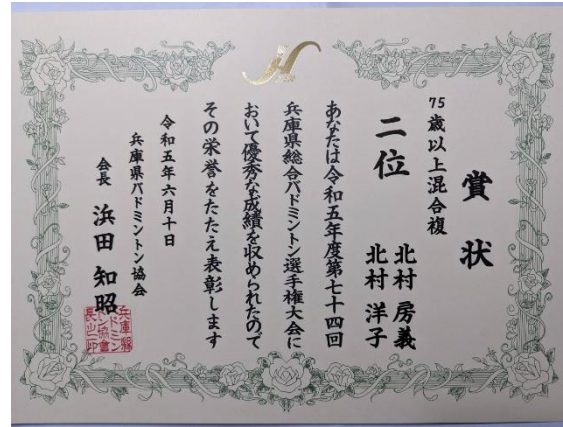 賞状
75歳以上混合複
二位
北村 房義
北村 洋子
あなたは令和五年度第七十四回
兵庫県総合バドミントン選手権大会に
おいて優秀な成績を収められたので
その栄誉をたたえ表彰します
令和五年六月十日
兵庫県バドミントン協会
会長 浜田 知昭
兵庫縣
バドミン
トン協會
長之印